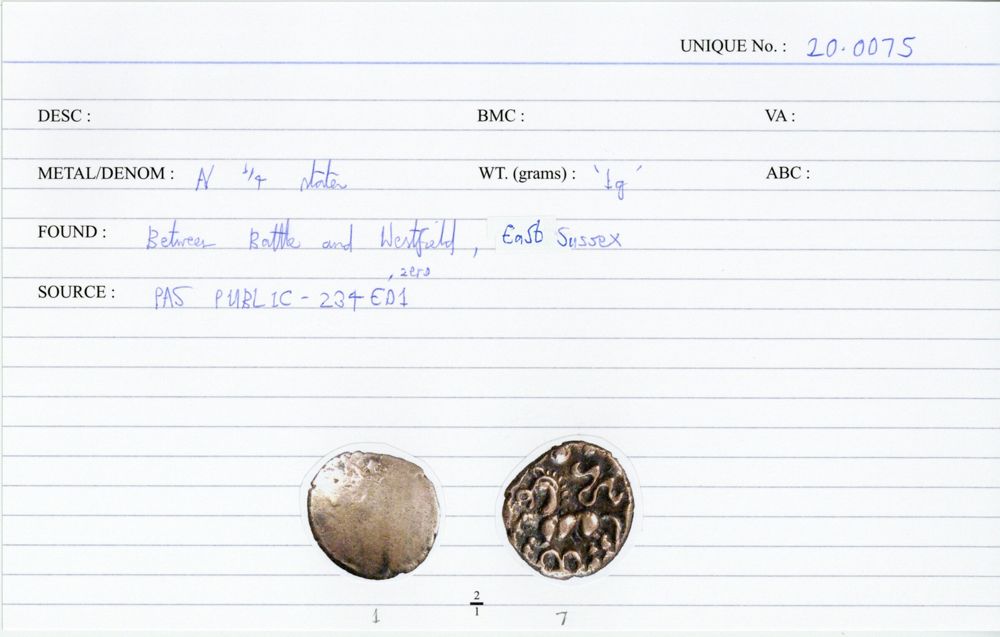 UNIQUE No. : 20.0075
DESC : BMC : VA :
METAL/DENOM : N 1/4 stater WT. (grams) : '1g' ABC :
FOUND : Between Battle and Westfield, East Sussex
, zero
SOURCE : PAS PUBLIC - 234ED1
2
1
1 7